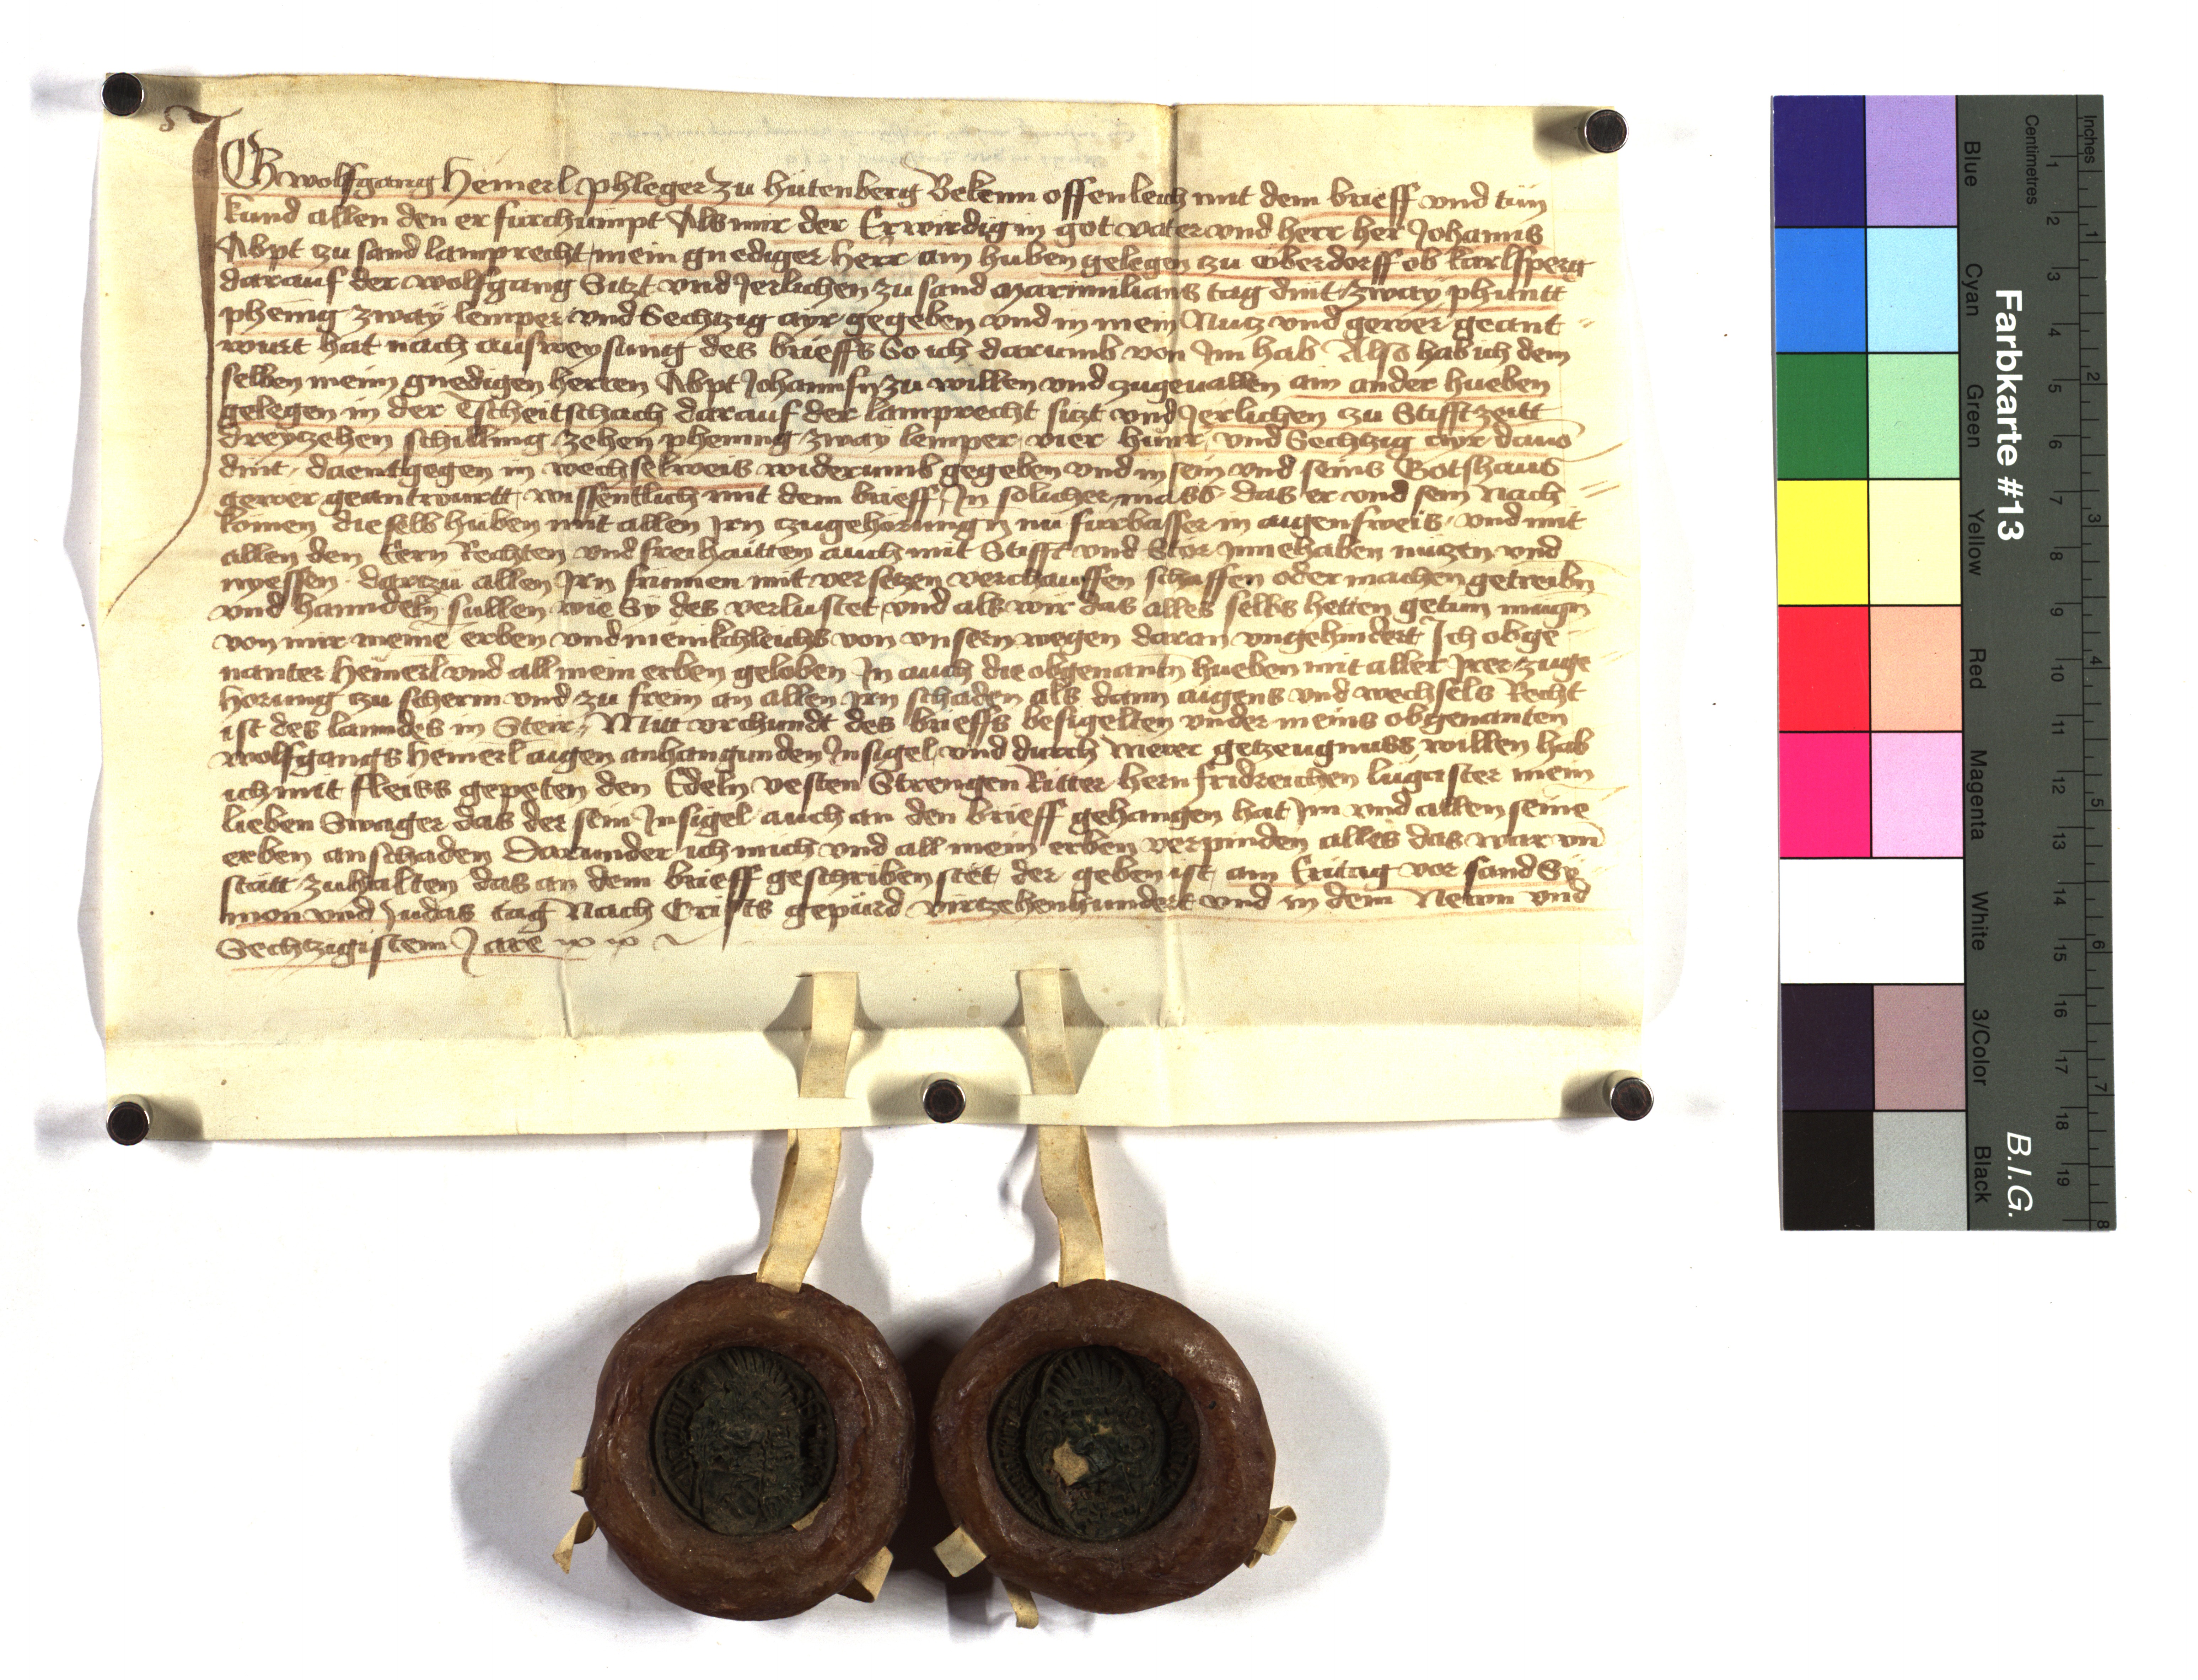 ICh wolfgang Hemerl phleger zu hutenberg Bekenn offenleich mit dem brieff vnd tun
kund allen den er furchumpt Als mir der Erwirdig in got vater vnd herr her Johanns
Abpt zu sand lamprecht mein gnediger herr ain huben gelegen zu Oberdorff ob karlsperg
darauf der wolfgang Sitzt vnd Jerlichen zu sand Maximilians tag dint zway phuntt
phenig zway lemper vnd Sechtzig ayr gegeben vnd in mein Nutz vnd gewer geant
wurt hat nach ausweysung des brieffs So ich darumb von Im hab Also hab ich dem
selben meim gnedigen herren Abpt Johannsn zu willen vnd zugeuallen ain ander hueben
gelegen in der Tscheitschach darauf der lamprecht sitzt vnd Jerlichen zu Stifftzeitt
dreyzehen schilling zehen phennig zway lemper vier hunr vnd Sechtzig ayr dauo
dint daentgegen in wechselweis widerumb gegeben vnd in sein vnd seins Gotshaus
gewer geantwurtt wissentlich mit dem brieff In solicher mass das er vnd sein Nach
komen dieselb huben mit allen Irn zugehorungn nu furbasser in aigensweis vnd mit
allen den Eern Rechten vnd freihaitten auch mit Stifft vnd Stor Innehaben nutzen vnd
nyessen dartzu allen Irn frumen mit versetzen verchauffen schaffen oder machen getreibn
vnd hanndeln sullen wie Sy des verlustet vnd als wir das alles selbs hetten getun mugn
von mir meine erben vnd menikchleichs von vnsern wegen daran vngehindert Ich obge
nanter Hemerl vnd all mein erben geloben In auch die obgenantn hueben mit aller Irer zuge
horung zu scherm vnd zu frein an allen irn schaden als dann aigens vnd wechsels Recht
ist des lanndes in Steir Mitt vrchundt des brieffs besigelten vnder meins obgenanten
wolfgangs Hemerl aigen anhangunden Insigel vnd durch merer getzeugnuss willen hab
ich mit fleiss gepeten den Edeln vesten Strengen Ritter hern fridreichen lugaster mein
lieben Swager das der sein Insigel auch an den brieff gehangen hat Im vnd allen seine
erben an schaden Darunder ich mich vnd all mein erben verpinden alles das war vn
statt zuhalten das an dem brieff geschriben stet der geben ist am Eritag vor sand Sy
mon vnd Judas tag Nach Crists gepurd virtzehenhundert vnd in dem Newn vnd
Sechtzigistem Jare
Farbkarte #13
B.I.G.
Inches
Centimetres
Blue
Cyan
Green
Yellow
Red
Magenta
White
3/Color
Black
1 2 3 4 5 6 7 8 9 10 11 12 13 14 15 16 17 18 19
1 2 3 4 5 6 7 8